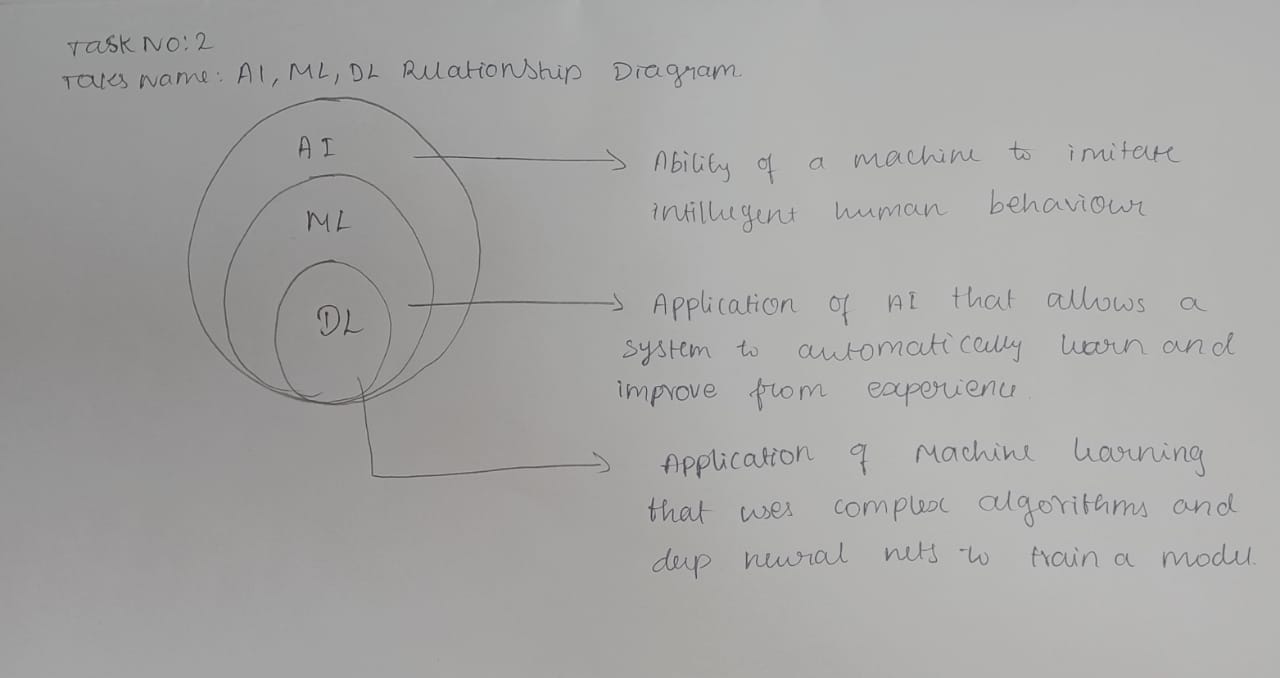 Task No: 2
Takes Name: AI, ML, DL Relationship Diagram
AI
Ability of a machine to imitate
intilligent human behaviour
ML
DL
Application of AI that allows a
system to automatically learn and
improve from experience.
Application of Machine learning
that uses complex algorithms and
deep neural nets to train a model.